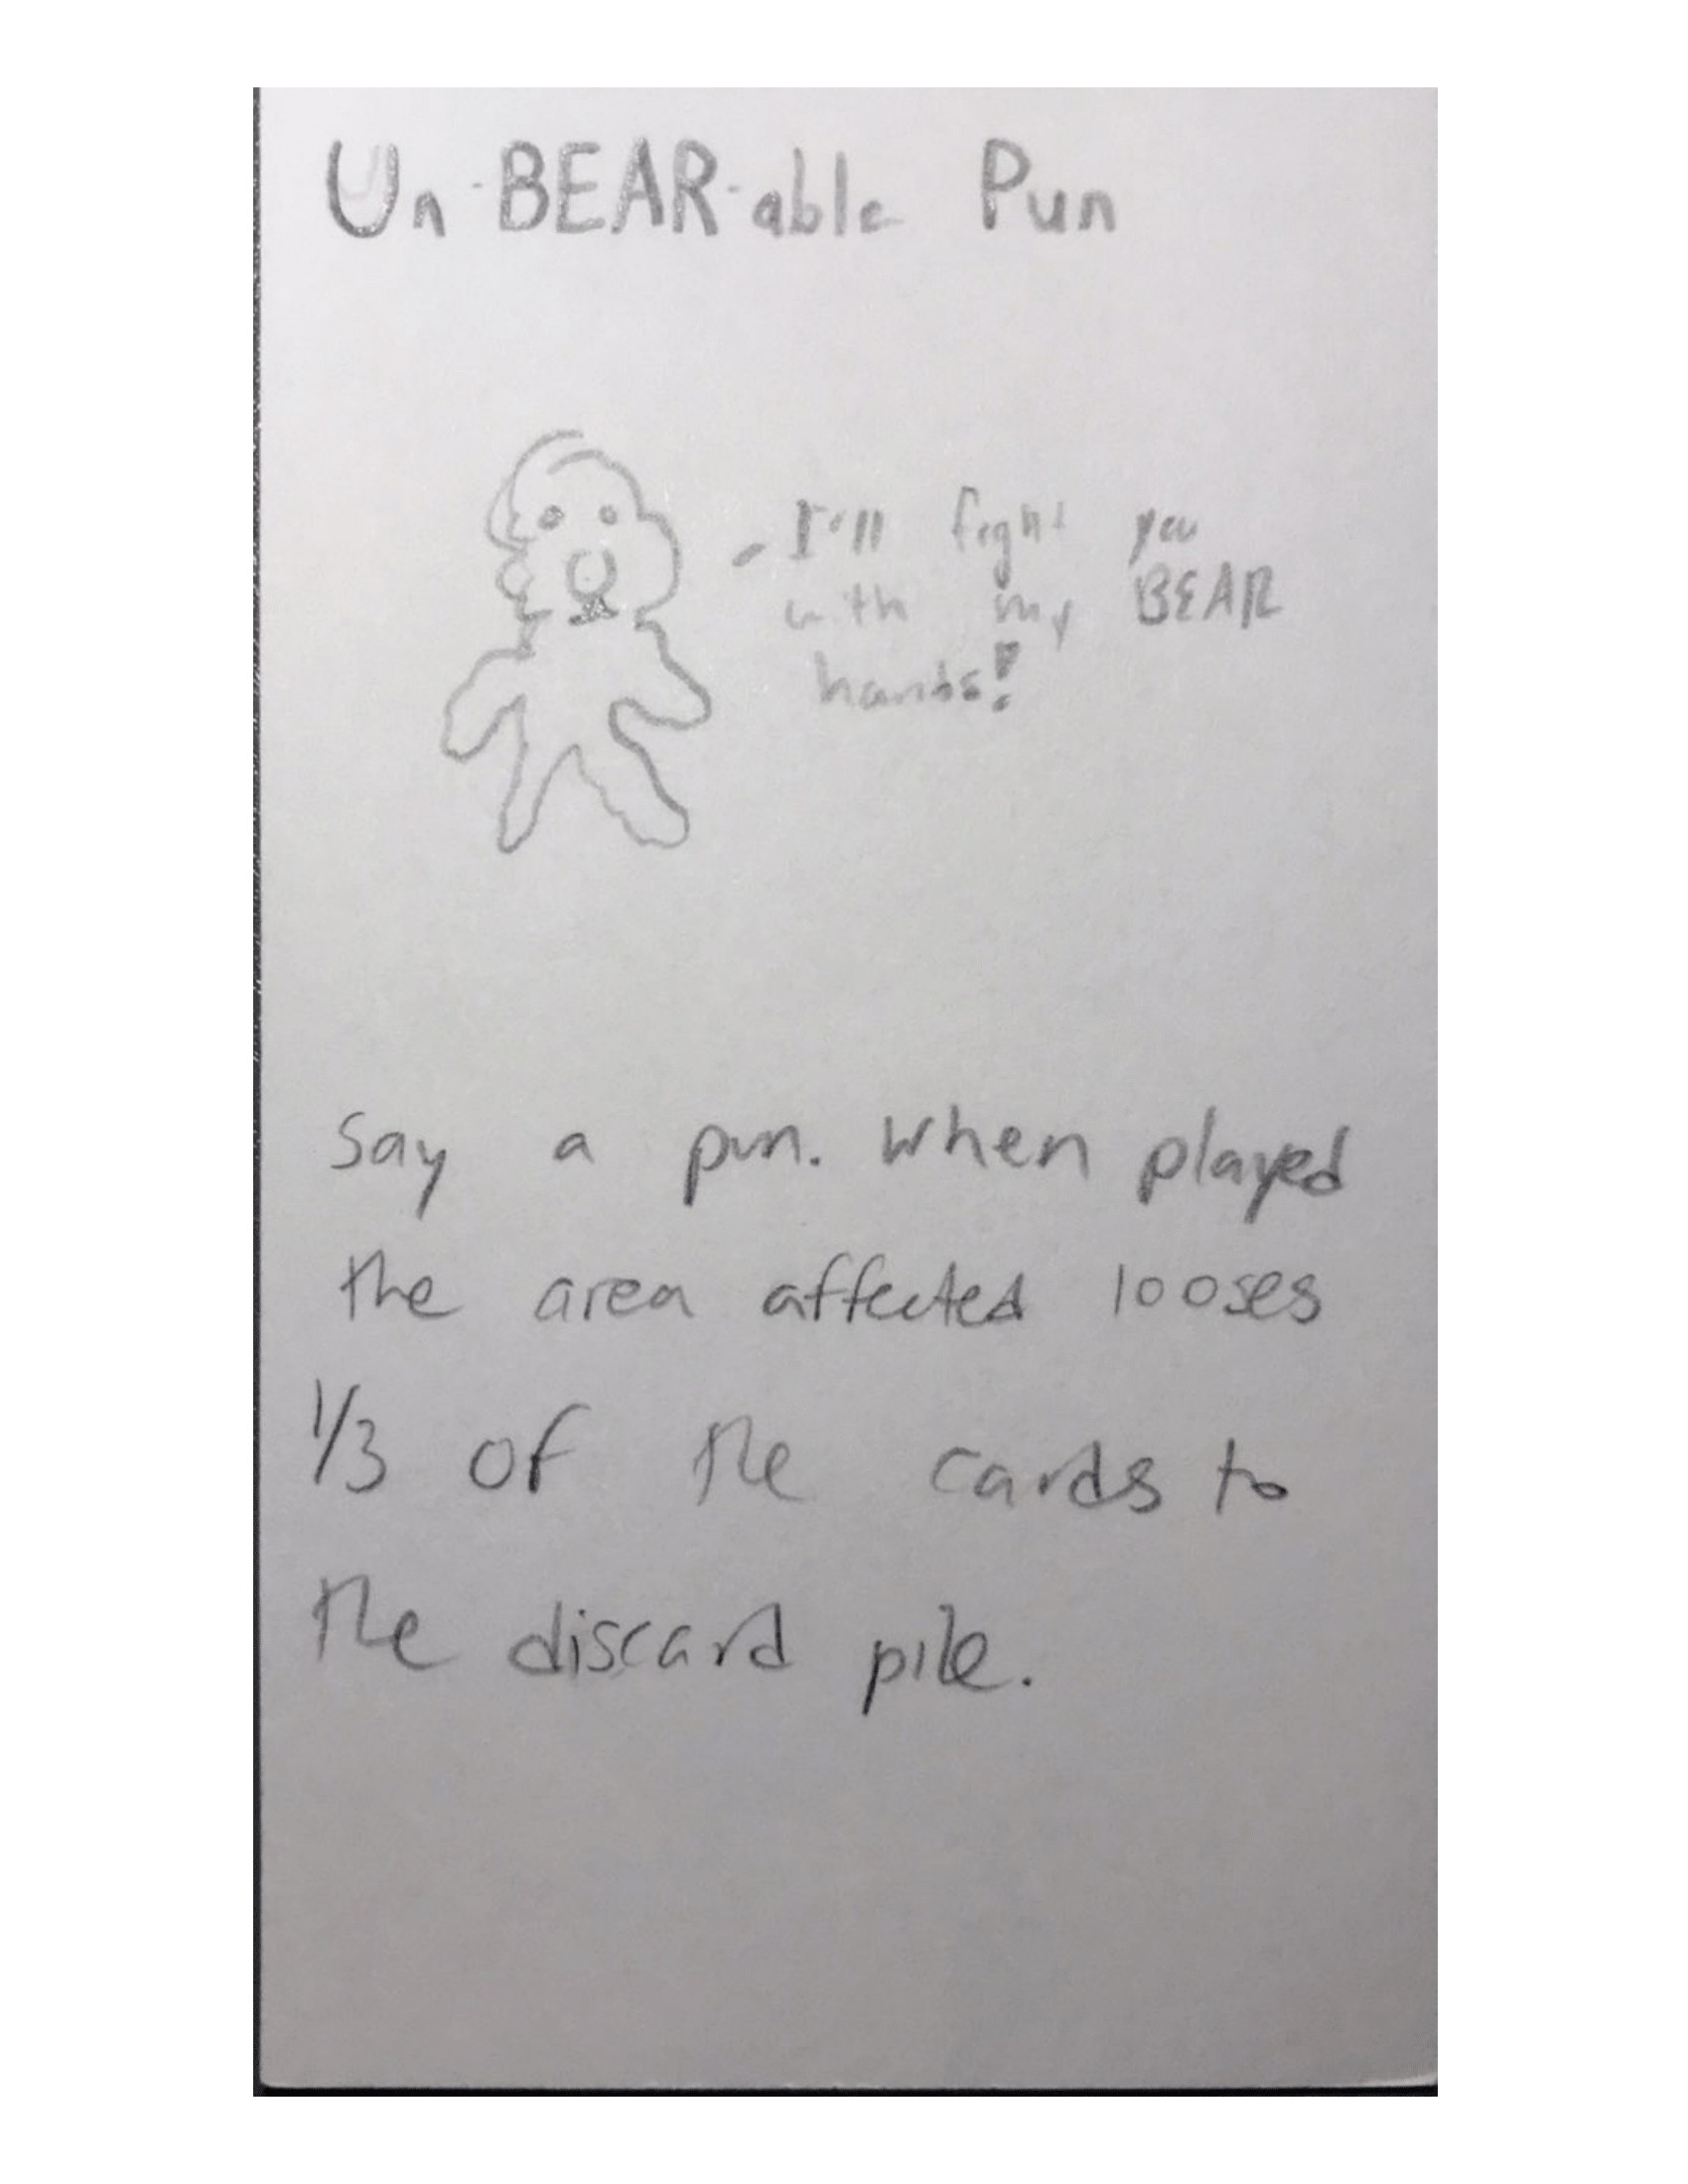 Un-BEAR-able Pun
- I'll fight you
with my BEAR
hands!
Say a pun. When played
the area affected looses
1/3 of the cards to
the discard pile.